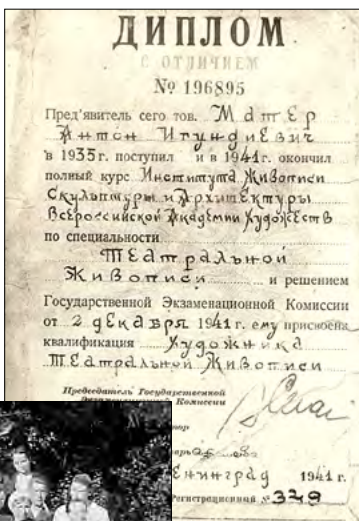 ДИПЛОМ
С ОТЛИЧИЕМ
№ 196895
Пред'явитель сего тов. Матер
Антон Игундиевич
в 1935 г. поступил и в 1941 г. окончил
полный курс Института Живописи
Скульптуры и Архитектуры
Всероссийской Академии Художеств
по специальности
Театральной
Живописи и решением
Государственной Экзаменационной Комиссии
от 2 декабря 1941 г. ему присвоена
квалификация Художника
Театральной Живописи
Председатель Государственной
Экзаменационной Комиссии
енинград 1941 г.
Регистрационный № 349